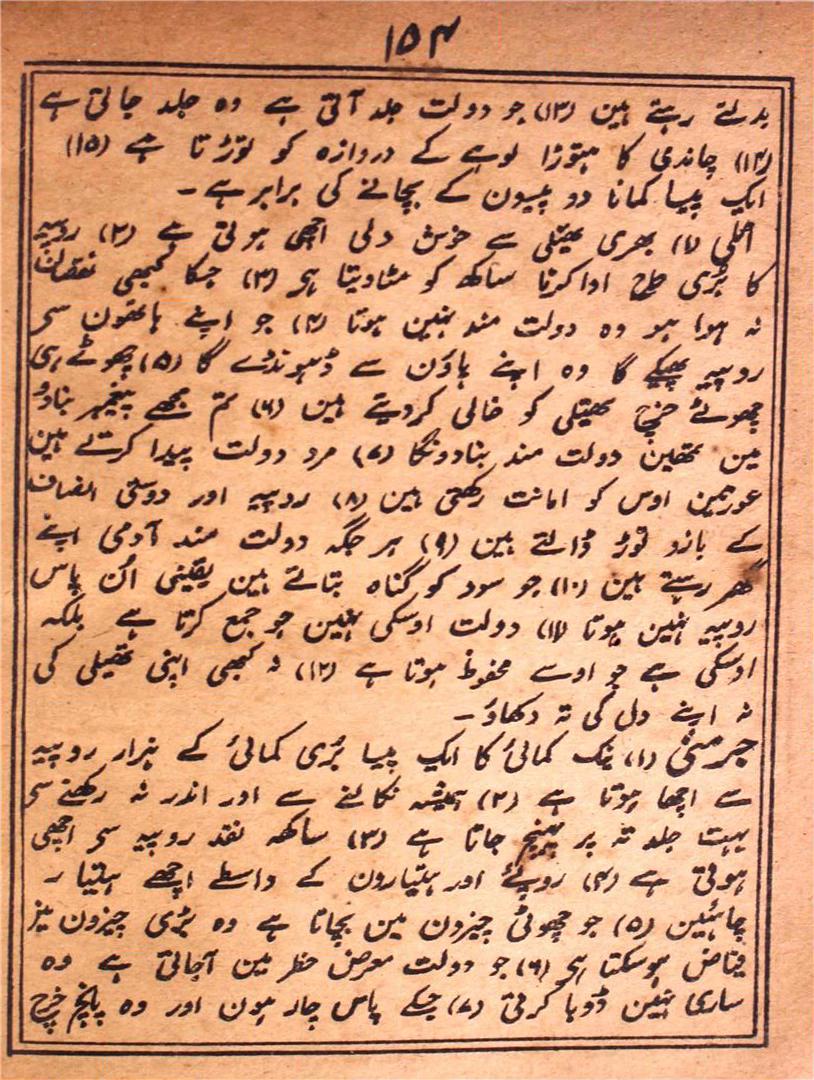 ۱۵۴
بدلتے رہتے ہین (۱۳) جو دولت جلد آتی ہے وہ جلد جاتی ہے
(۱۴) چاندی کا ہتوڑا لوہے کے دروازہ کو توڑتا ہے (۱۵)
ایک پیسا کمانا دو پیسون کے بچانے کی برابر ہے ۔
اٹلی (۱) بھری تھیلی سے خوش دلی اچھی ہوتی ہے (۲) روپیہ
کا بُری طرح ادا کرنا ساکھ کو مٹا دیتا ہی (۳) جسکا کبھی نقصان
نہ ہوا ہو وہ دولت مند نہین ہوتا (۴) جو اپنے ہاتھون سی
روپیہ پھیکے گا وہ اپنے پاؤن سے ڈہونڈے گا (۵) چھوٹے ہی
چھوٹے خرچ تھیلی کو خالی کردیتے ہین (۶) تم مجھے پیغمبر بنادو
مین تمھین دولت مند بنادونگا (۷) مرد دولت پیدا کرتے ہین
عورتین اوس کو امانت رکھتی ہین (۸) روپیہ اور دوستی انصاف
کے بازو توڑ ڈالتے ہین (۹) ہر جگہ دولت مند آدمی اپنے
گھر رہتے ہین (۱۰) جو سود کو گناہ بتاتے ہین یقینی اُن پاس
روپیہ نہین ہوتا (۱۱) دولت اوسکی نہین جو جمع کرتا ہے بلکہ
اوسکی ہے جو اوسے محفوظ ہوتا ہے (۱۲) نہ کبھی اپنی تھیلی کی
نہ اپنے دل کی تہ دکھاؤ ۔
جرمنی (۱) نیک کمائی کا ایک پیسا بُری کمائی کے ہزار روپیہ
سے اچھا ہوتا ہے (۲) ہمیشہ نکالنے سے اور اندر نہ رکھنے سی
بہت جلد تہ پر پہنچ جاتا ہے (۳) ساکھ نقد روپیہ سی اچھی
ہوتی ہے (۴) روپئے اور ہتیارون کے واسطے اچھے ہتیار
چاہئین (۵) جو چھوٹی چیزون مین بچاتا ہے وہ بڑی چیزون مین
فیاض ہوسکتا ہی (۶) جو دولت معرض خطر مین آجاتی ہے وہ
ساری نہین ڈوبا کرتی (۷) جسکے پاس چار ہون اور وہ پانچ خرچ